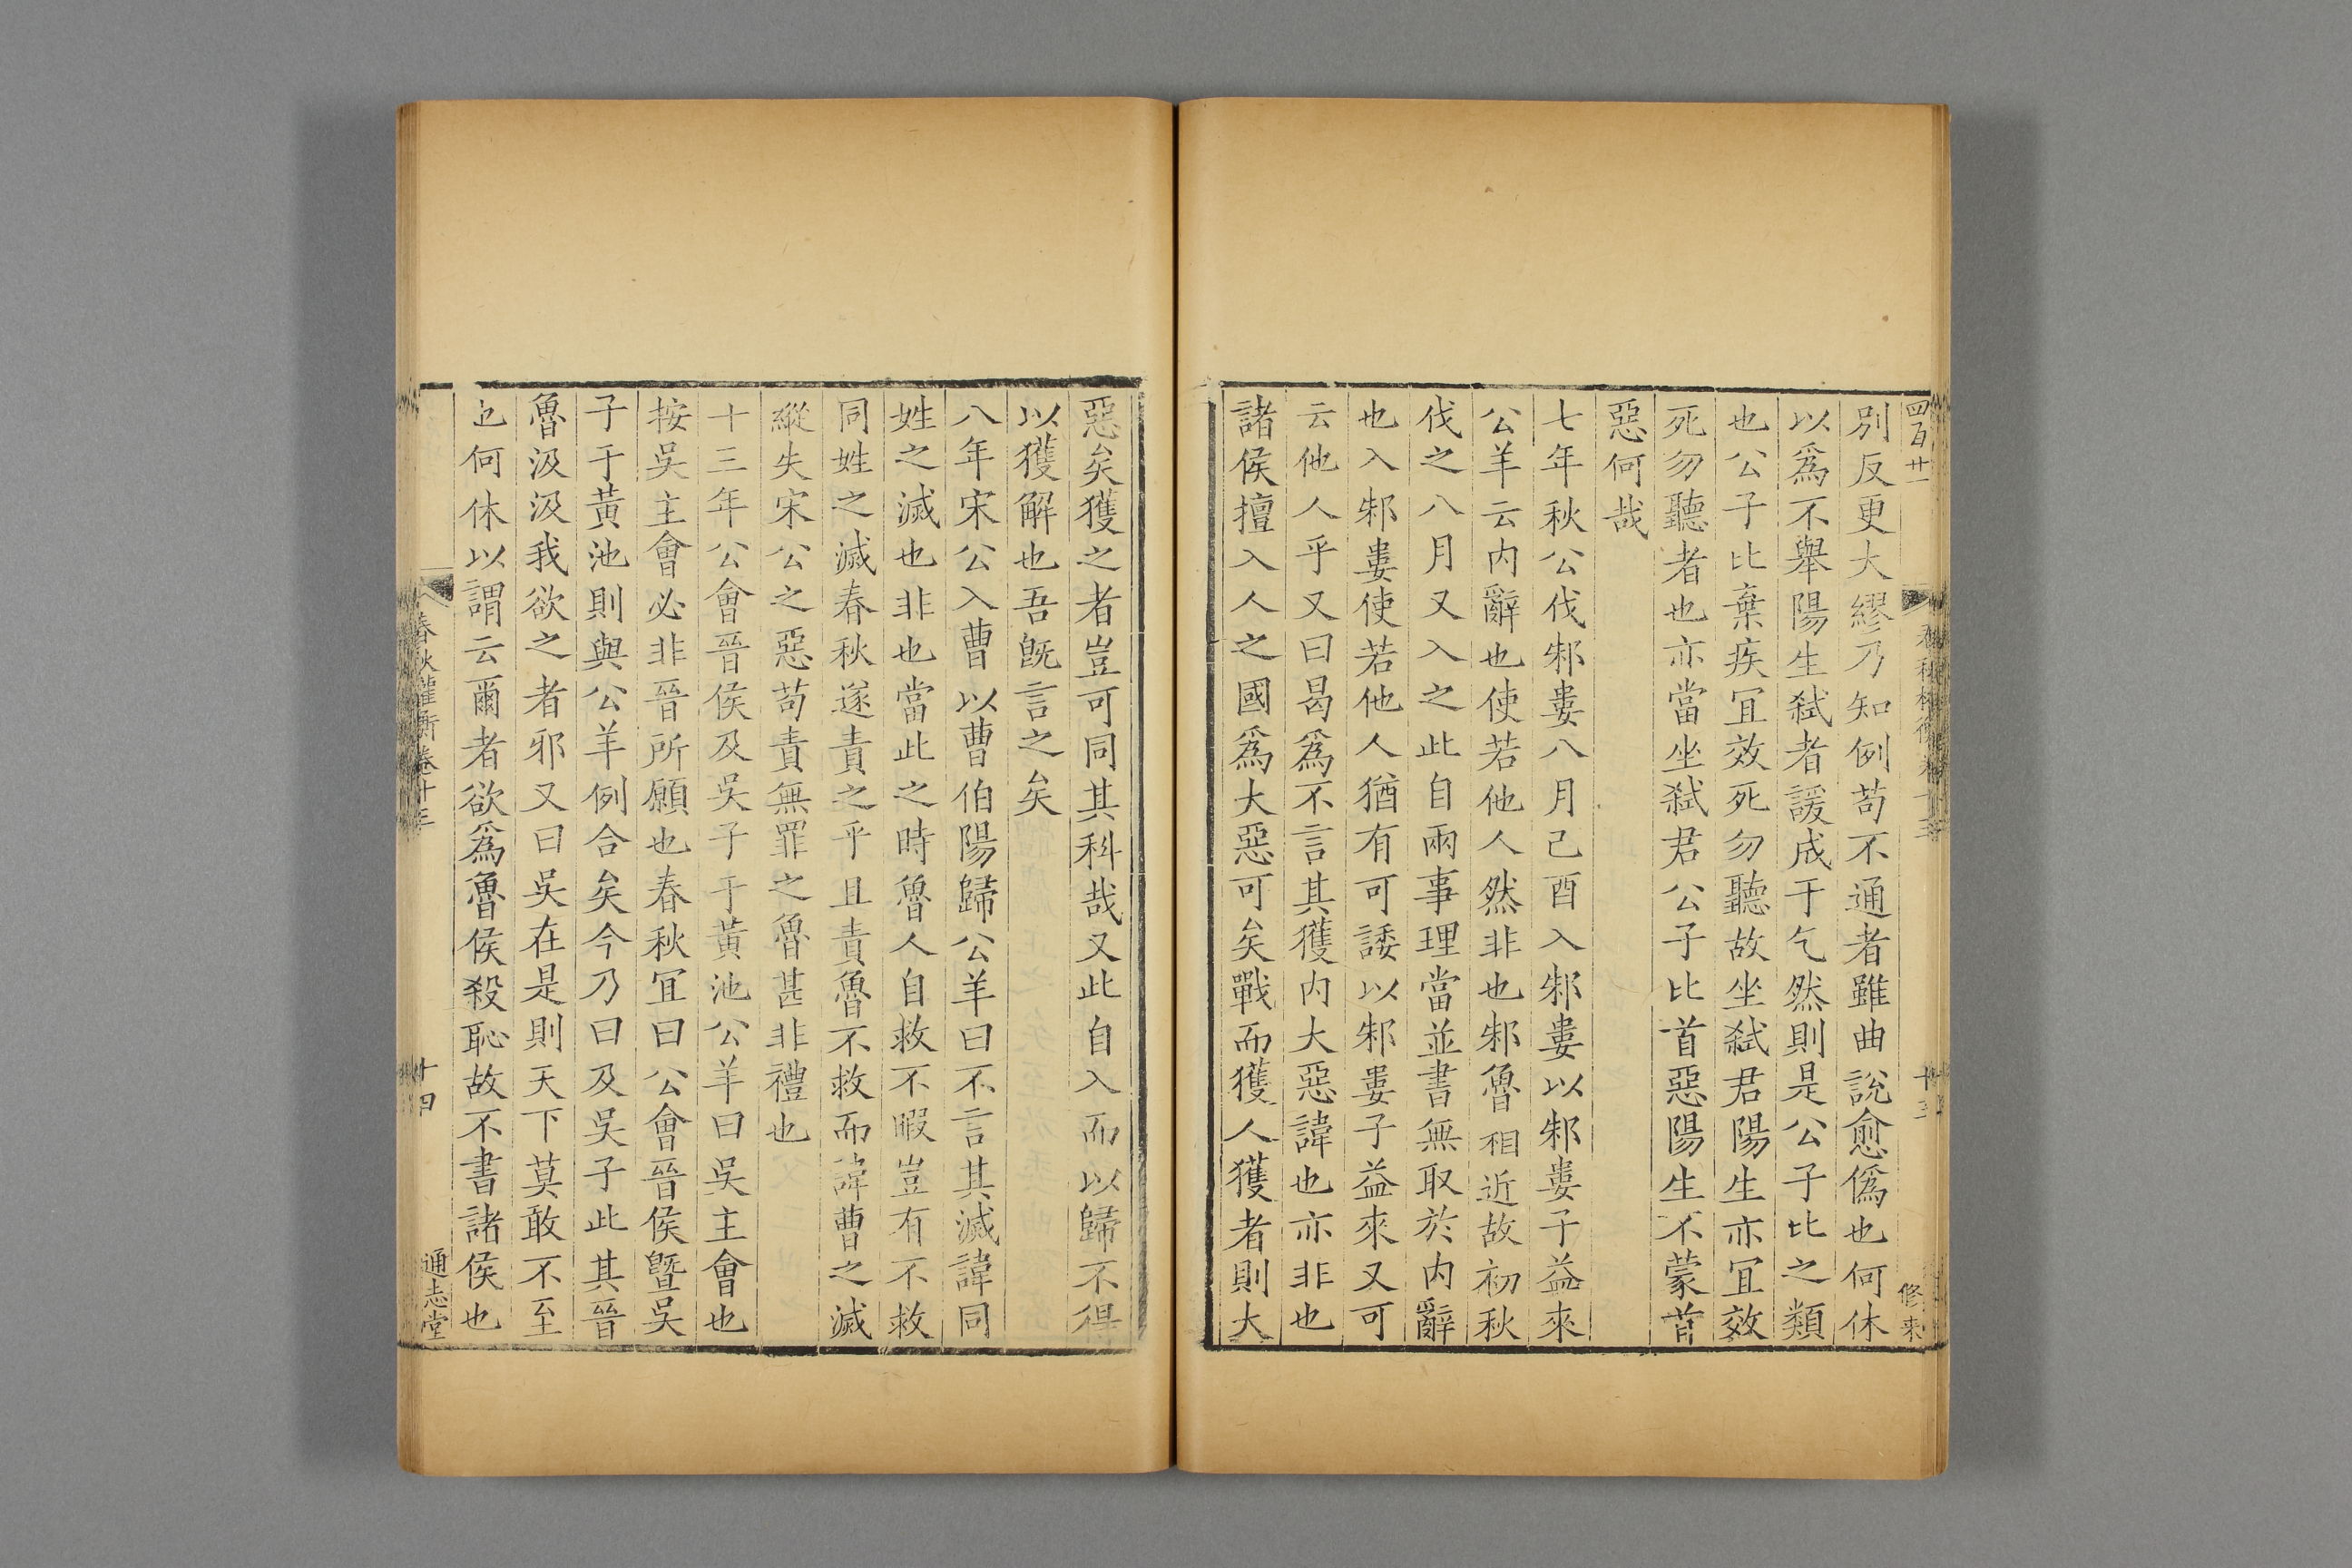 四百廿一
春秋權衡卷十三
十三
修來
別反更大繆乃知例苟不通者雖曲說愈僞也何休
以爲不舉陽生弑者諼成于乞然則是公子比之類
也公子比棄疾宜效死勿聽故坐弑君陽生亦宜效
死勿聽者也亦當坐弑君公子比首惡陽生不蒙首
惡何哉
七年秋公伐邾婁八月己酉入邾婁以邾婁子益來
公羊云内辭也使若他人然非也邾魯相近故初秋
伐之八月又入之此自兩事理當並書無取於内辭
也入邾婁使若他人猶有可諉以邾婁子益來又可
云他人乎又曰曷爲不言其獲内大惡諱也亦非也
諸侯擅入人之國爲大惡可矣戰而獲人獲者則大
惡矣獲之者豈可同其科哉又此自入而以歸不得
以獲解也吾旣言之矣
八年宋公入曹以曹伯陽歸公羊曰不言其滅諱同
姓之滅也非也當此之時魯人自救不暇豈有不救
同姓之滅春秋遂責之乎且責魯不救而諱曹之滅
縱失宋公之惡苟責無罪之魯甚非禮也
十三年公會晉侯及吳子于黃池公羊曰吳主會也
按吳主會必非晉所願也春秋宜曰公會晉侯曁吳
子于黃池則與公羊例合矣今乃曰及吳子此其晉
魯汲汲我欲之者邪又曰吳在是則天下莫敢不至
也何休以謂云爾者欲爲魯侯殺恥故不書諸侯也
春秋權衡卷十三
十四
通志堂